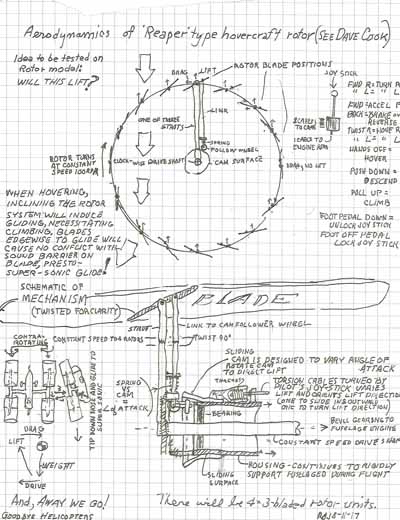 Aerodynamics of 'Reaper' type hovercraft rotor (SEE DAVE COOK)
Idea to be tested on
Rotor model:
WILL THIS LIFT?
DRAG
LIFT
ROTOR BLADE POSITIONS
LINK
ONE OF THREE
STRUTS
SPRING
FOLLOWER WHEEL
CAM SURFACE
CLOCKWISE DRIVE SHAFT
ROTOR TURNS
AT CONSTANT
SPEED
DRAG, NO LIFT
JOY STICK
FWD R = TURN
" L = " L
FWD = ACCEL
BACK = BRAKE
REVERSE
TWIST R =
" L = " L
HANDS OFF =
HOVER
PUSH DOWN =
DESCEND
PULL UP =
CLIMB
FOOT PEDAL DOWN =
UNLOCK JOY STICK
FOOT OFF PEDAL
LOCK JOY STICK
WHEN HOVERING,
INCLINING THE ROTOR
SYSTEM WILL INDUCE
GLIDING, NECESSITATING
CLIMBING, BLADES
EDGEWISE TO GLIDE WILL
CAUSE NO CONFLICT WITH
SOUND BARRIER ON
BLADE, PRESTO-
SUPER-SONIC GLIDE!
SCHEMATIC OF
MECHANISM
(TWISTED FOR CLARITY)
BLADE
STRUT
LINK TO CAM FOLLOWER WHEEL
CONTRA
ROTATING
CONSTANT SPEED FOR ROTORS
TWIST 90°
SLIDING
CAM IS DESIGNED TO VARY ANGLE OF
ATTACK
ROTATE CAM
TO DIRECT LIFT
TORSION CABLES TURNED BY
PILOT'S JOY-STICK VARIES
LIFT AND ORIENTS LIFT DIRECTION
(ONE TO SLIDE IN & OUT AND
ONE TO TURN LIFT DIRECTION)
SPRING
VS
CAM
=
∠ of
ATTACK
THREADED
BEARING
BEVEL GEARING TO
FUSELAGE ENGINE
CONSTANT SPEED DRIVE
TIP DOWN NOSE AND GLIDE TO
SUPER-SONIC
DRAG
LIFT
WEIGHT
DRIVE
SLIDING
SURFACE
HOUSING - CONTINUES TO RIGIDLY
SUPPORT FUSELAGE DURING FLIGHT
And, AWAY WE GO!
GOODBYE HELICOPTERS
There will be 4-3-bladed rotor units.